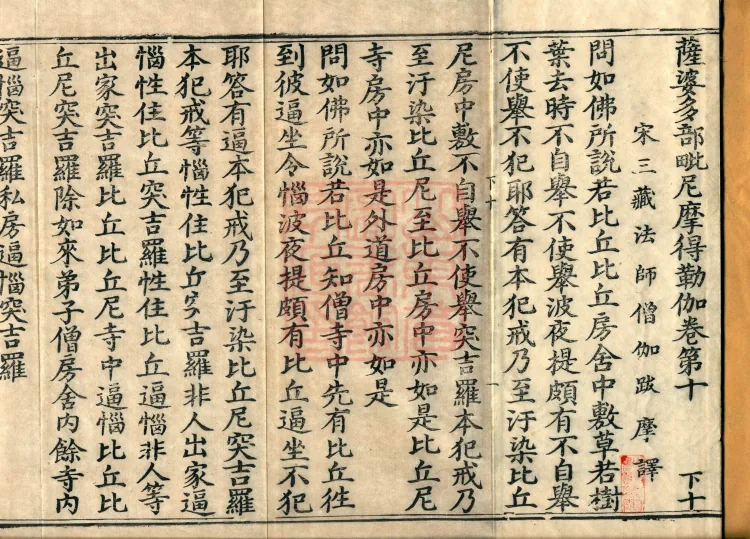 薩婆多部毗尼摩得勒伽卷第十 下十
宋三藏法師僧伽跋摩譯
問如佛所說若比丘比丘房舍中敷草若樹
葉去時不自舉不使舉波夜提頗有不自舉
不使舉不犯耶答有本犯戒乃至汙染比丘
尼房中敷不自舉不使舉突吉羅本犯戒乃
至汙染比丘尼至比丘房中亦如是比丘尼
寺房中亦如是外道房中亦如是
問如佛所說若比丘知僧寺中先有比丘徃
到彼逼坐令惱波夜提頗有比丘逼坐不犯
耶答有逼本犯戒乃至汙染比丘尼突吉羅
本犯戒等惱性住比丘突吉羅非人出家逼
惱性住比丘突吉羅性住比丘逼惱非人等
出家突吉羅比丘比丘尼寺中逼惱比丘比
丘尼突吉羅除如來弟子僧房舍内餘寺内
逼惱突吉羅私房逼惱突吉羅
下十一